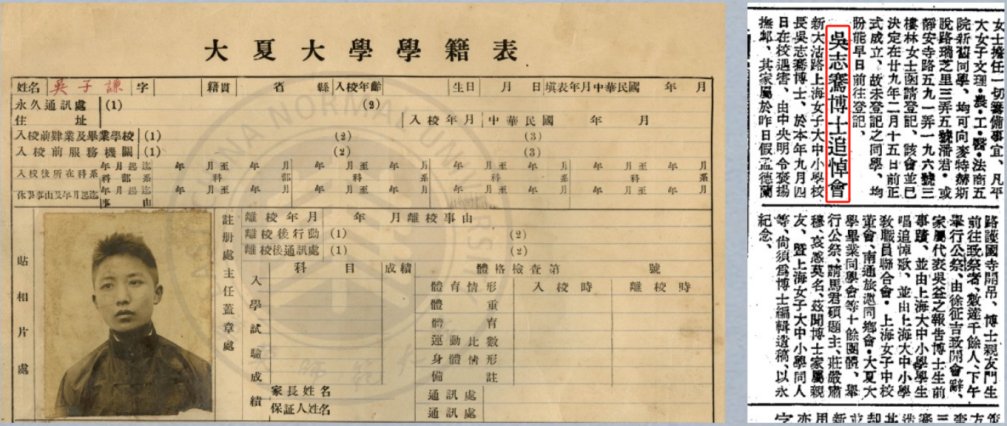 大夏大學學籍表
姓名 吳子謙 字 籍貫 省 縣 入校年齡 生日 月 日 填表年月 中華民國 年 月
永久通訊處 (1) (2)
住 址 入校年月 中華民國 年 月
入校前肄業及畢業學校 (1) (2) (3)
入校前服務機關 (1) (2) (3)
入校後所在科系 年 月起 年 月至 年 月至 年 月至 年 月至 年 月至 年 月至
科 系 科 系
休學事由及年月
貼相片處
註册處主任蓋章處
離校年月 年 月 離校事由
離校後行動 (1) (2)
離校後通訊處 (1) (2)
入學試驗成績
科 目 成績 體格檢查第 號
體育情形 入校時 離校時
體 重
體 育
運動比數
身體情形
備 註
家長姓名 通訊處
保証人姓名 通訊處
女士擔任一切籌備事宜 凡平
大女子文理·農工·醫法商五
院新舊同學、均可向麥特赫斯
脫路瑞芝里三弄五號潘君、或
靜安寺路五九一弄一九六號三
樓林女士函請登記、該會並已
決定在廿九年二月十五日前正
式成立、故未登記之同學、均
盼能早日前往登記、
吳志騫博士追悼會
新大沽路上海女子大中小學校
長吳志騫博士、於本年九月四
日在校遇害、由中央明令褒揚
撫卹、其家屬於昨日假孟德蘭
路護國寺開吊、博士親友門生
前往致祭者、數達千餘人、下午
舉行公祭、由徐征吉致開會辭、
家屬代表吳益之報告博士生前
事蹟、並由上海大中小學學生
唱追悼歌、並由上海大中小學
敎職員聯合會·上海女子中校
董會·南通旅滬同鄉會·大夏大
學畢業同學會等十餘團體、舉
行公祭、請馬君碩題主、莊嚴肅
穆、哀感莫名、茲聞博士家屬親
友、暨上海女子大中小學同人
等、尙須爲博士編輯遺稿、以永
紀念、